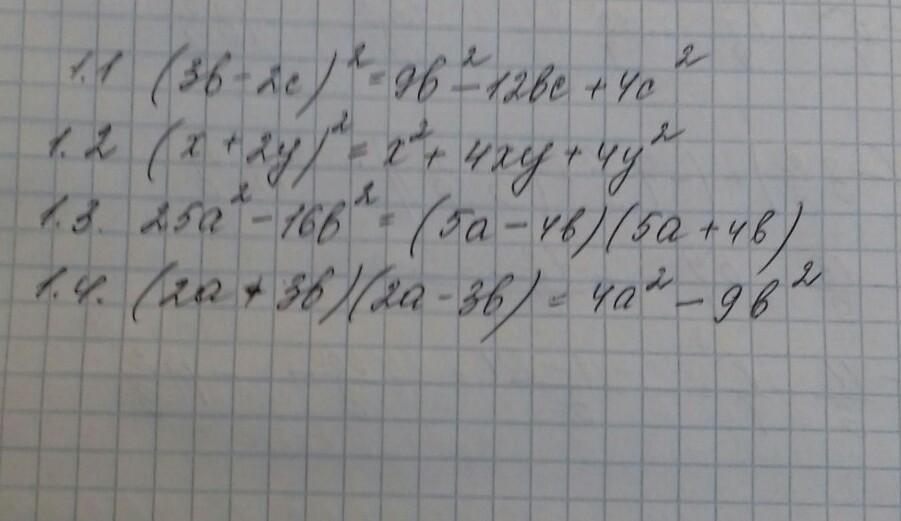 1.1 (3b-2c)² = 9b² - 12bc + 4c²
1.2 (x + 2y)² = x² + 4xy + 4y²
1.3. 25a² - 16b² = (5a - 4b)(5a + 4b)
1.4. (2a + 3b)(2a - 3b) = 4a² - 9b²